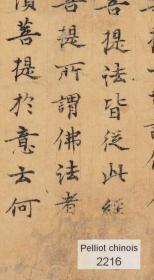 菩提法皆從此經
菩提所謂佛法者
須菩提於意云何
Pelliot chinois
2216